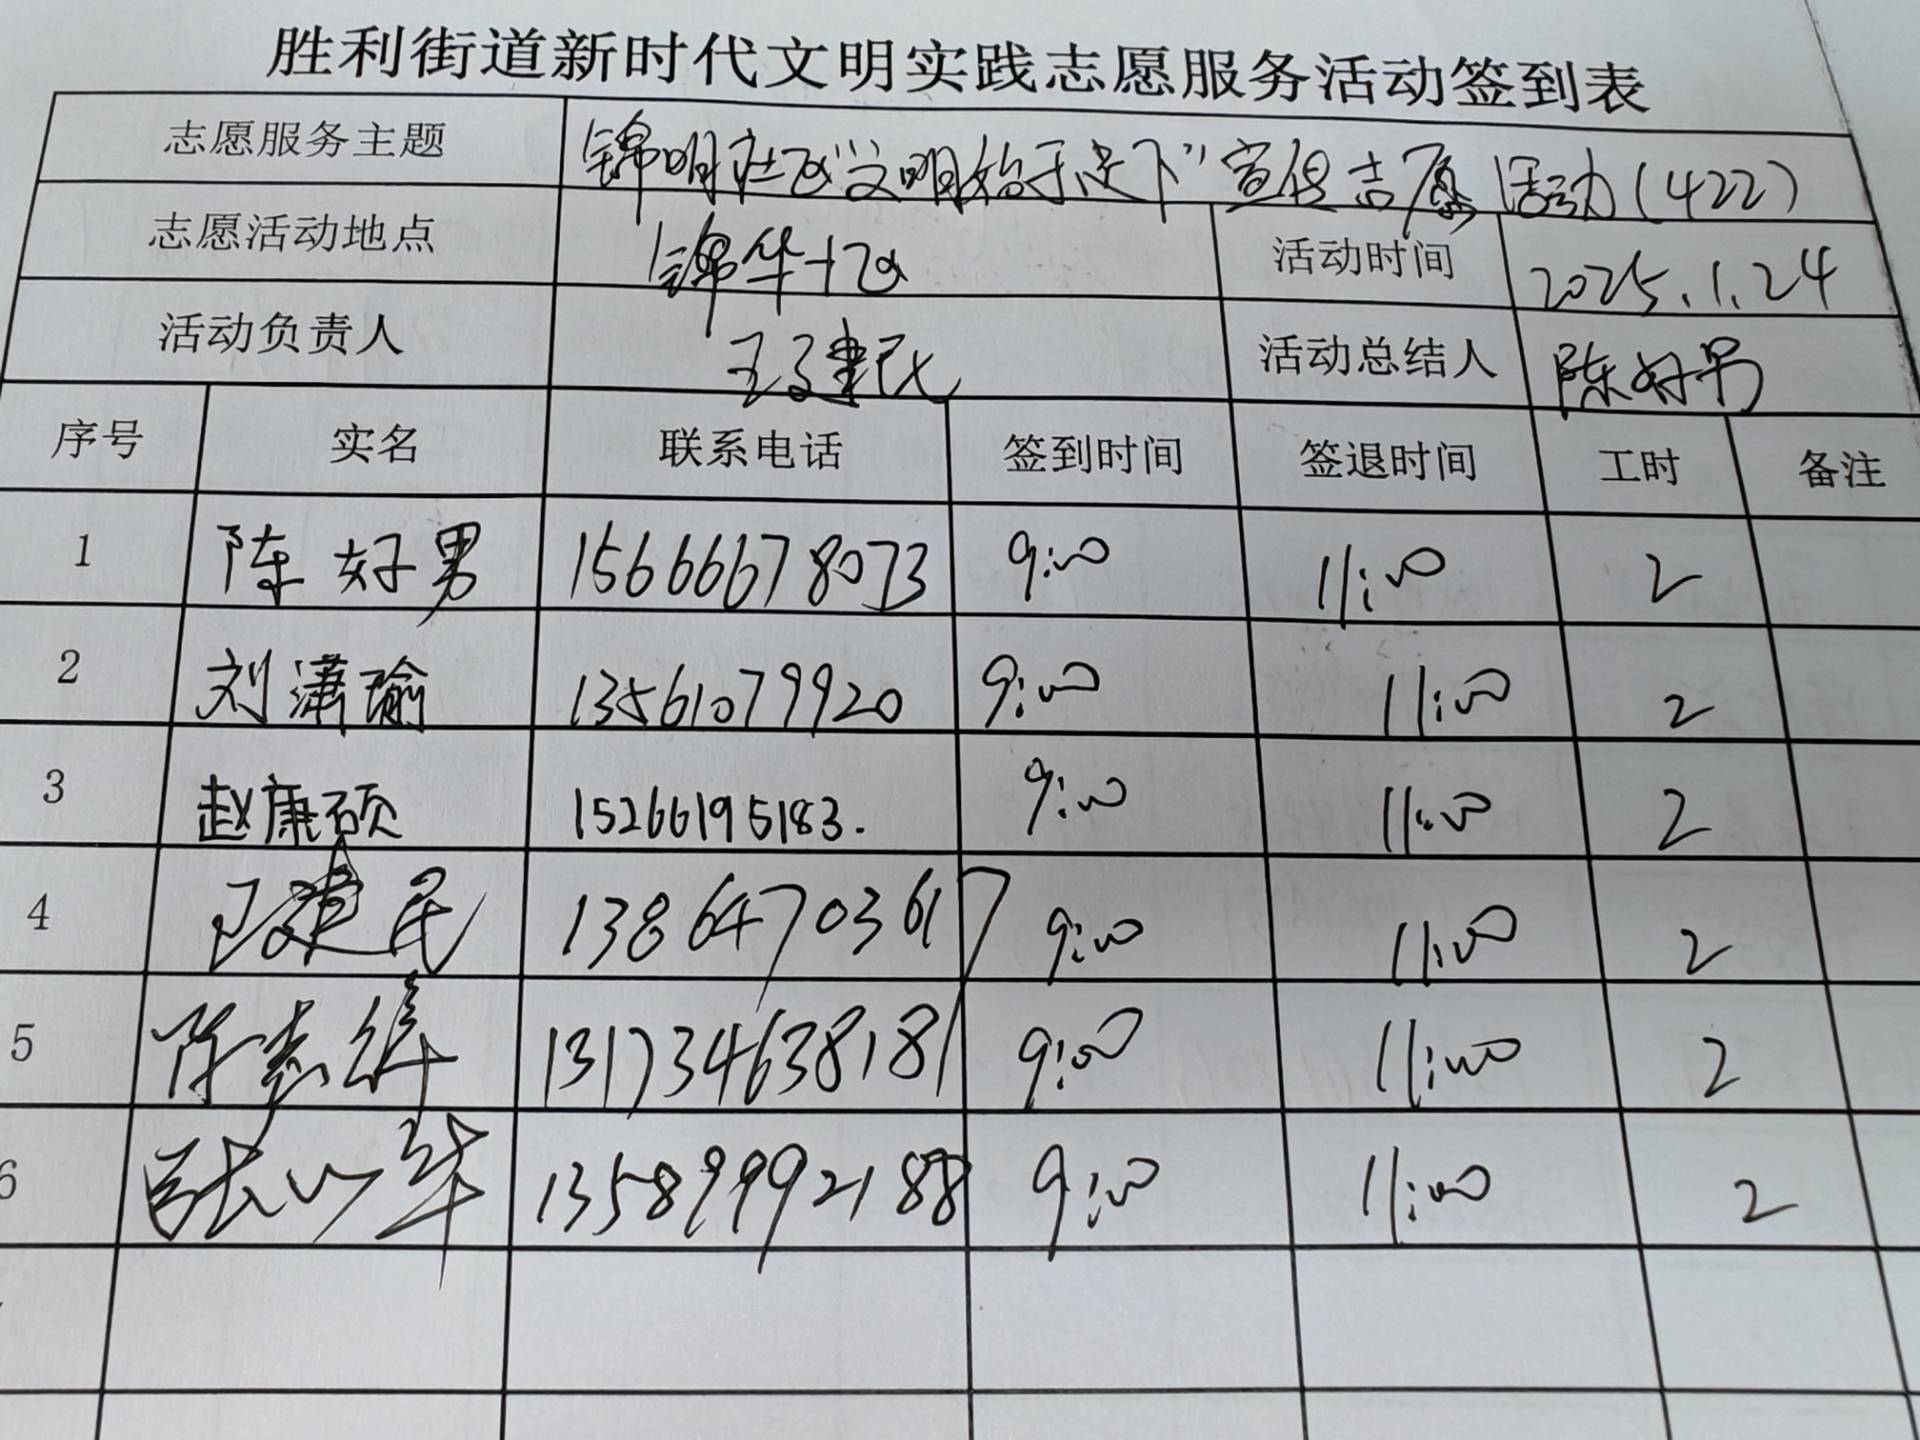 胜利街道新时代文明实践志愿服务活动签到表
志愿服务主题 锦明社区“文明始于足下”宣传志愿活动(422)
志愿活动地点 锦华一区 活动时间 2025.1.24
活动负责人 王建民 活动总结人 陈好男
序号 实名 联系电话 签到时间 签退时间 工时 备注
1 陈好男 15666678073 9:00 11:00 2
2 刘潇瑜 13561079920 9:00 11:00 2
3 赵康硕 15266195183. 9:00 11:00 2
4 王建民 13864703617 9:00 11:00 2
5 131734638181 9:00 11:00 2
6 13589992188 9:00 11:00 2